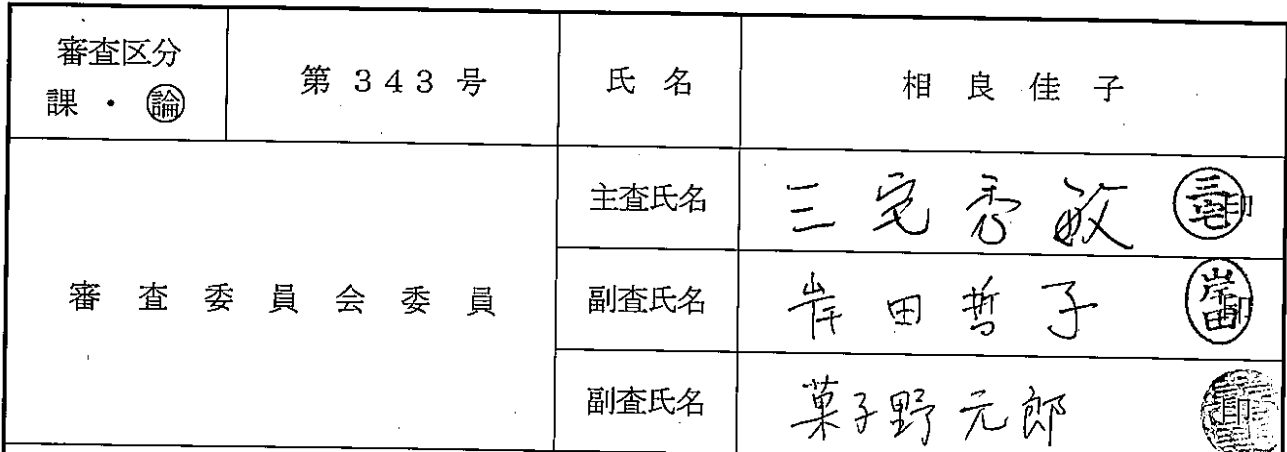 審査区分
課 ・ 論
第 343 号
氏 名
相 良 佳 子
審 査 委 員 会 委 員
主査氏名
三宅秀敏 三宅 印
副査氏名
岸田哲子 岸田 印
副査氏名
菓子野元郎 印